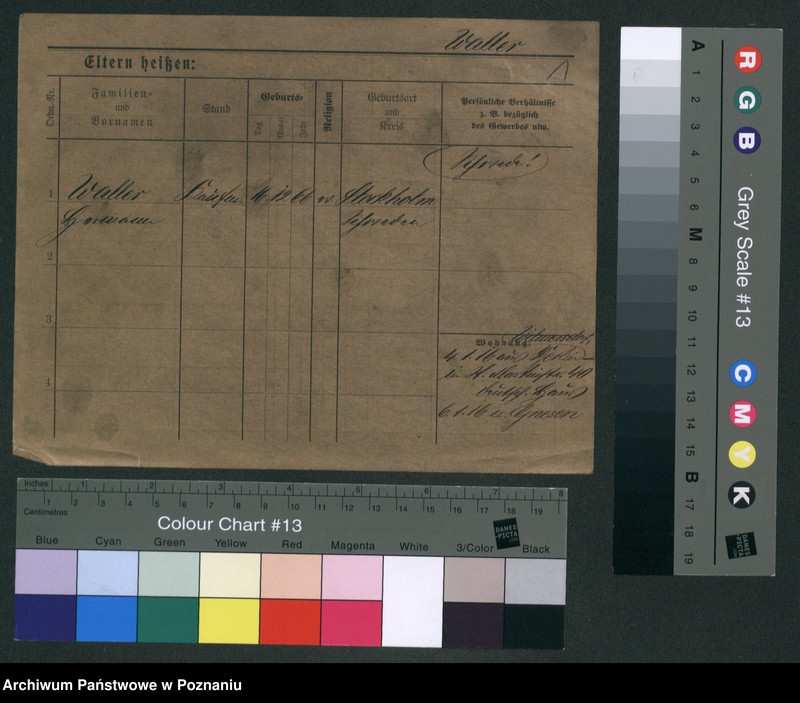 Waller
Eltern heißen:
Ordn.-Nr.
Familien-
und
Vornamen
Stand
Geburts-
Tag
Monat
Jahr
Religion
Geburtsort
und
Kreis
Persönliche Verhältnisse
z. B. bezüglich
des Gewerbes usw.
Schwede!
1
Waller
Hermann
12 66
ev.
Stockholm
Schweden
2
3
4
Wohnung.
Wilmersdorf
4.1.16 aus Berlin
in St. Martinstr. 40
6.1.16 n. Gnesen
A
1
2
3
4
5
6
M
8
9
10
11
12
13
14
15
B
17
18
19
R
G
B
Grey Scale #13
C
M
Y
K
DANES
-PICTA
Inches
1
2
3
4
5
6
7
8
Centimetres
1
2
3
4
5
6
7
8
9
10
11
12
13
14
15
16
17
18
19
Colour Chart #13
DANES
-PICTA
.COM
Blue
Cyan
Green
Yellow
Red
Magenta
White
3/Color
Black
Archiwum Państwowe w Poznaniu